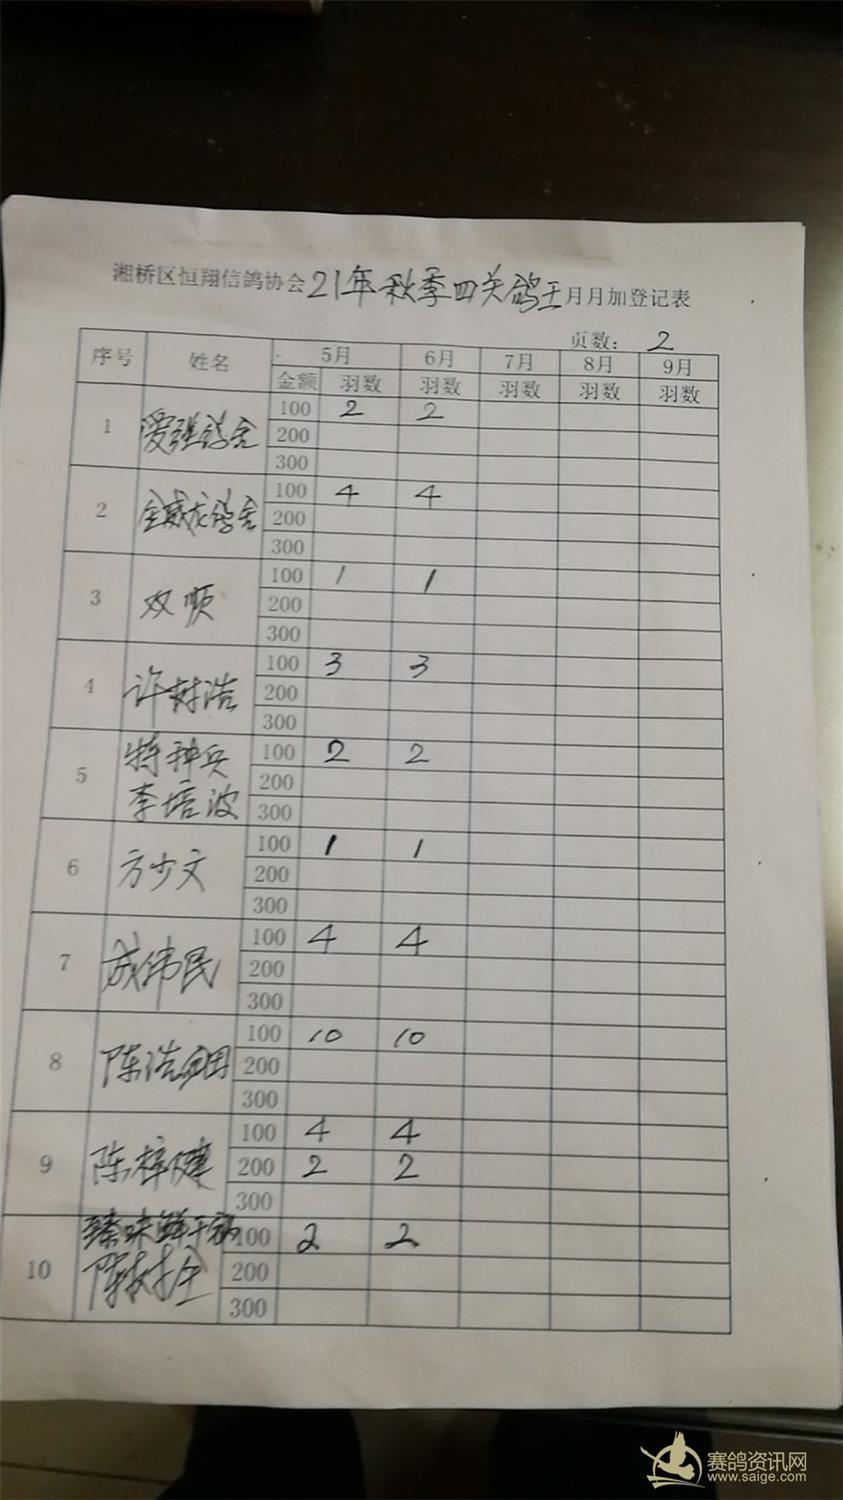 湘桥区恒翔信鸽协会21年秋季四关鸽王月月加登记表
页数： 2
序号 姓名 5月 6月 7月 8月 9月
金额 羽数 羽数 羽数 羽数 羽数
1 爱强鸽舍 100 2 2
200
300
2 金威龙鸽舍 100 4 4
200
300
3 双顺 100 1 1
200
300
4 许树浩 100 3 3
200
300
5 特种兵 100 2 2
李培波 200
300
6 方少文 100 1 1
200
300
7 成伟民 100 4 4
200
300
8 陈浩 100 10 10
200
300
9 陈梓健 100 4 4
200 2 2
300
10 臻味鲜干锅 100 2 2
陈树全 200
300
赛鸽资讯网
www.saige.com